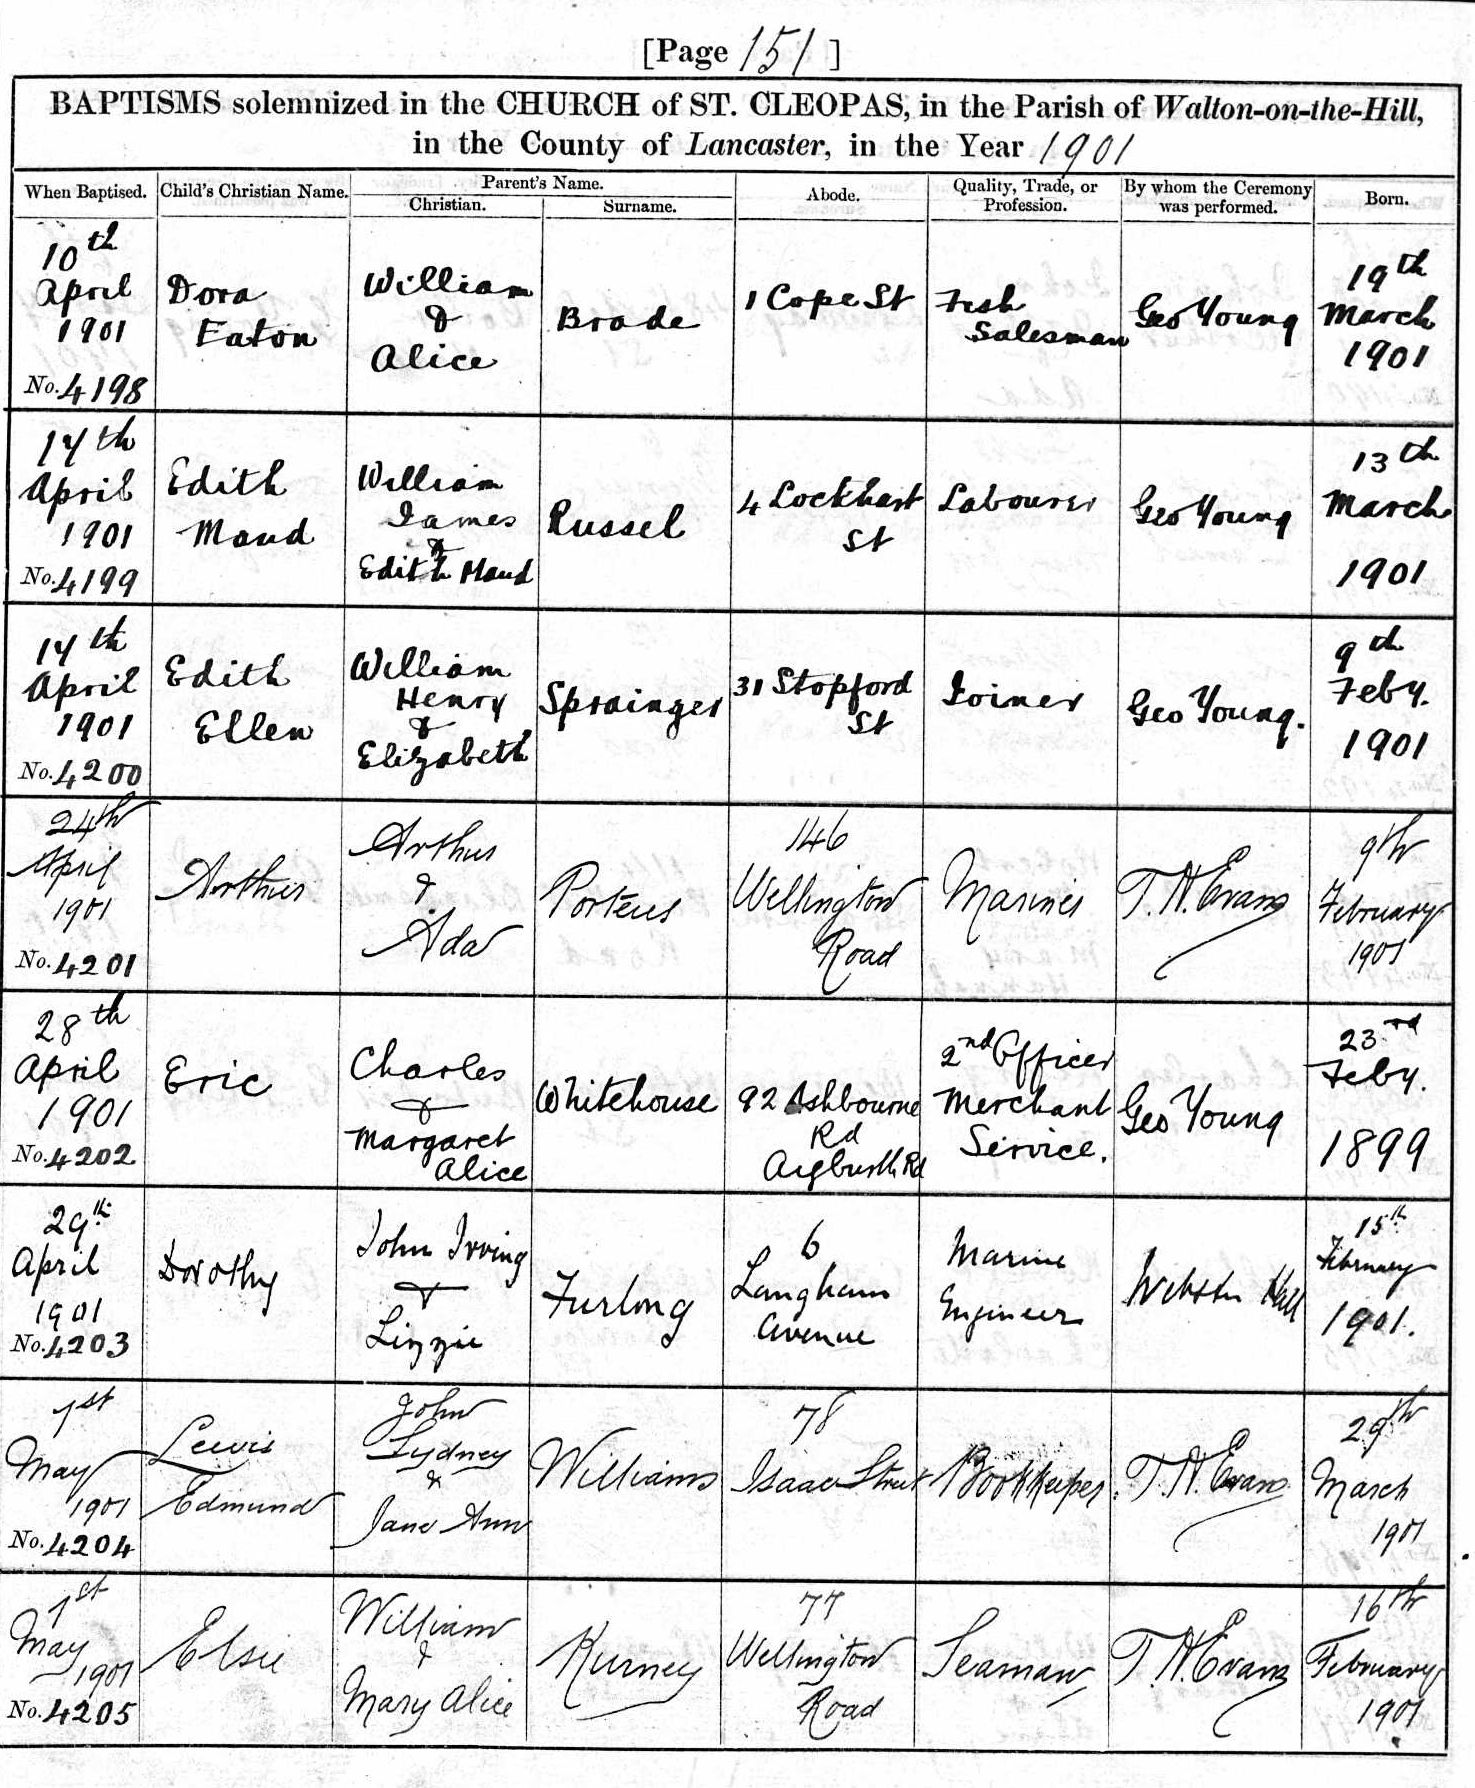 [Page 151]
BAPTISMS solemnized in the CHURCH of ST. CLEOPAS, in the Parish of Walton-on-the-Hill,
in the County of Lancaster, in the Year 1901
When Baptised. Child's Christian Name. Parent's Name. Christian. Surname. Abode. Quality, Trade, or Profession. By whom the Ceremony was performed. Born.
10th
April
1901
No. 4198
Dora
Eaton
William
&
Alice
Brade
1 Cope St
Fish
Salesman
Geo Young
19th
March
1901
14th
April
1901
No. 4199
Edith
Maud
William
James
&
Edith Maud
Russel
4 Lockhart
St
Labourer
Geo Young
13th
March
1901
14th
April
1901
No. 4200
Edith
Ellen
William
Henry
&
Elizabeth
Sprainger
31 Stopford
St
Joiner
Geo Young.
9th
Feby.
1901
24th
April
1901
No. 4201
Arthur
Arthur
&
Ada
Porteus
146
Wellington
Road
Mariner
T. H. Evans
9th
February
1901
28th
April
1901
No. 4202
Eric
Charles
&
Margaret
Alice
Whitehouse
92 Ashbourne
Rd
Aigburth Rd
2nd Officer
Merchant
Service.
Geo Young
23rd
Feby.
1899
29th
April
1901
No. 4203
Dorothy
John Irving
&
Lizzie
Furlong
6
Langham
Avenue
Marine
Engineer
Webster Hall
15th
February
1901.
1st
May
1901
No. 4204
Lewis
Edmund
John
Sydney
&
Jane Ann
Williams
78
Isaac Street
Bookkeeper
T. H. Evans
29th
March
1901
1st
May
1901
No. 4205
Elsie
William
&
Mary Alice
Kurney
77
Wellington
Road
Seaman
T. H. Evans
16th
February
1901